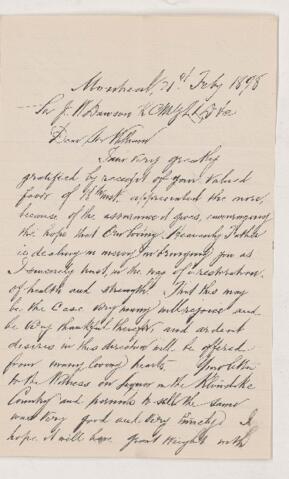 Moorhead, 21st Feby 1898
Sir J. W Dawson K CMG LLD &c
Dear Sir William
I am very greatly
gratified by receipt of your valued
favor of 17 inst, appreciated the more,
because of the assurance it gives, encouraging
the hope that Our loving Heavenly Father
is dealing in mercy in bringing you as
I sincerely trust, in the way of a restoration
of health and strength. That this may
be the case very many will rejoice and
be very thankful therefor, and ardent
desires in this direction will be offered
from many loving hearts. Your letter
to the Witness on liquor in the Klondike
Country and permits to sell the same
was very good and very timely. I
hope it will have great weight with